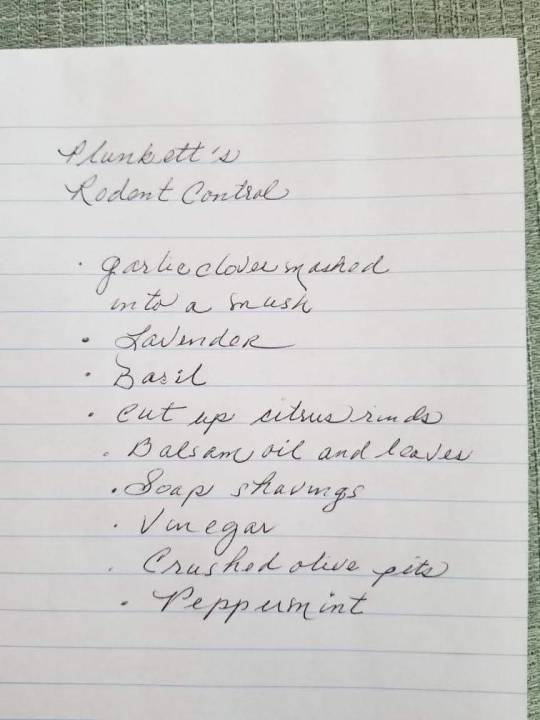 Plunkett's
Rodent Control
· garlic cloves mashed
into a mush
· Lavender
· Basil
· cut up citrus rinds
· Balsam oil and leaves
· Soap shavings
· Vinegar
· Crushed olive pits
· Peppermint